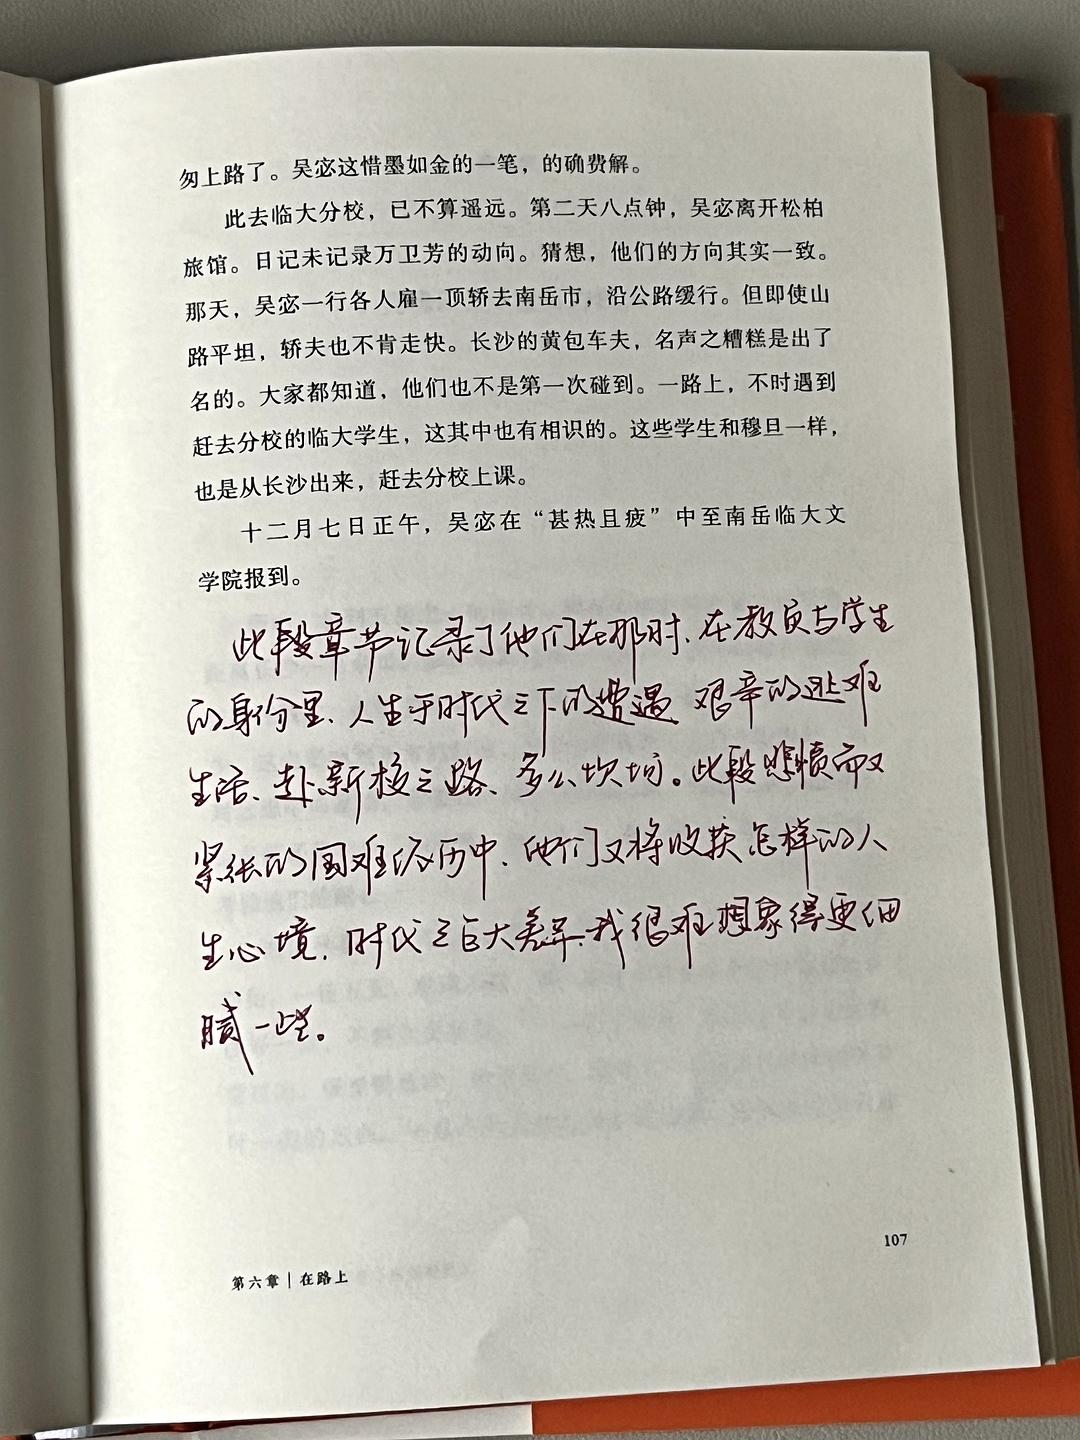 匆上路了。吴宓这惜墨如金的一笔，的确费解。
此去临大分校，已不算遥远。第二天八点钟，吴宓离开松柏
旅馆。日记未记录万卫芳的动向。猜想，他们的方向其实一致。
那天，吴宓一行各人雇一顶轿去南岳市，沿公路缓行。但即使山
路平坦，轿夫也不肯走快。长沙的黄包车夫，名声之糟糕是出了
名的。大家都知道，他们也不是第一次碰到。一路上，不时遇到
赶去分校的临大学生，这其中也有相识的。这些学生和穆旦一样，
也是从长沙出来，赶去分校上课。
十二月七日正午，吴宓在“甚热且疲”中至南岳临大文
学院报到。
此段章节记录了他们在那时、在教员与学生
的身份里、人生于时代之下的遭遇 艰辛的逃难
生活、赴新校之路、多么坎坷。此段悲愤而又
紧张的国难历中、他们又将收获怎样的人
生心境、时代之巨大差异、我很难想象得更细
腻一些。
107
第六章｜在路上